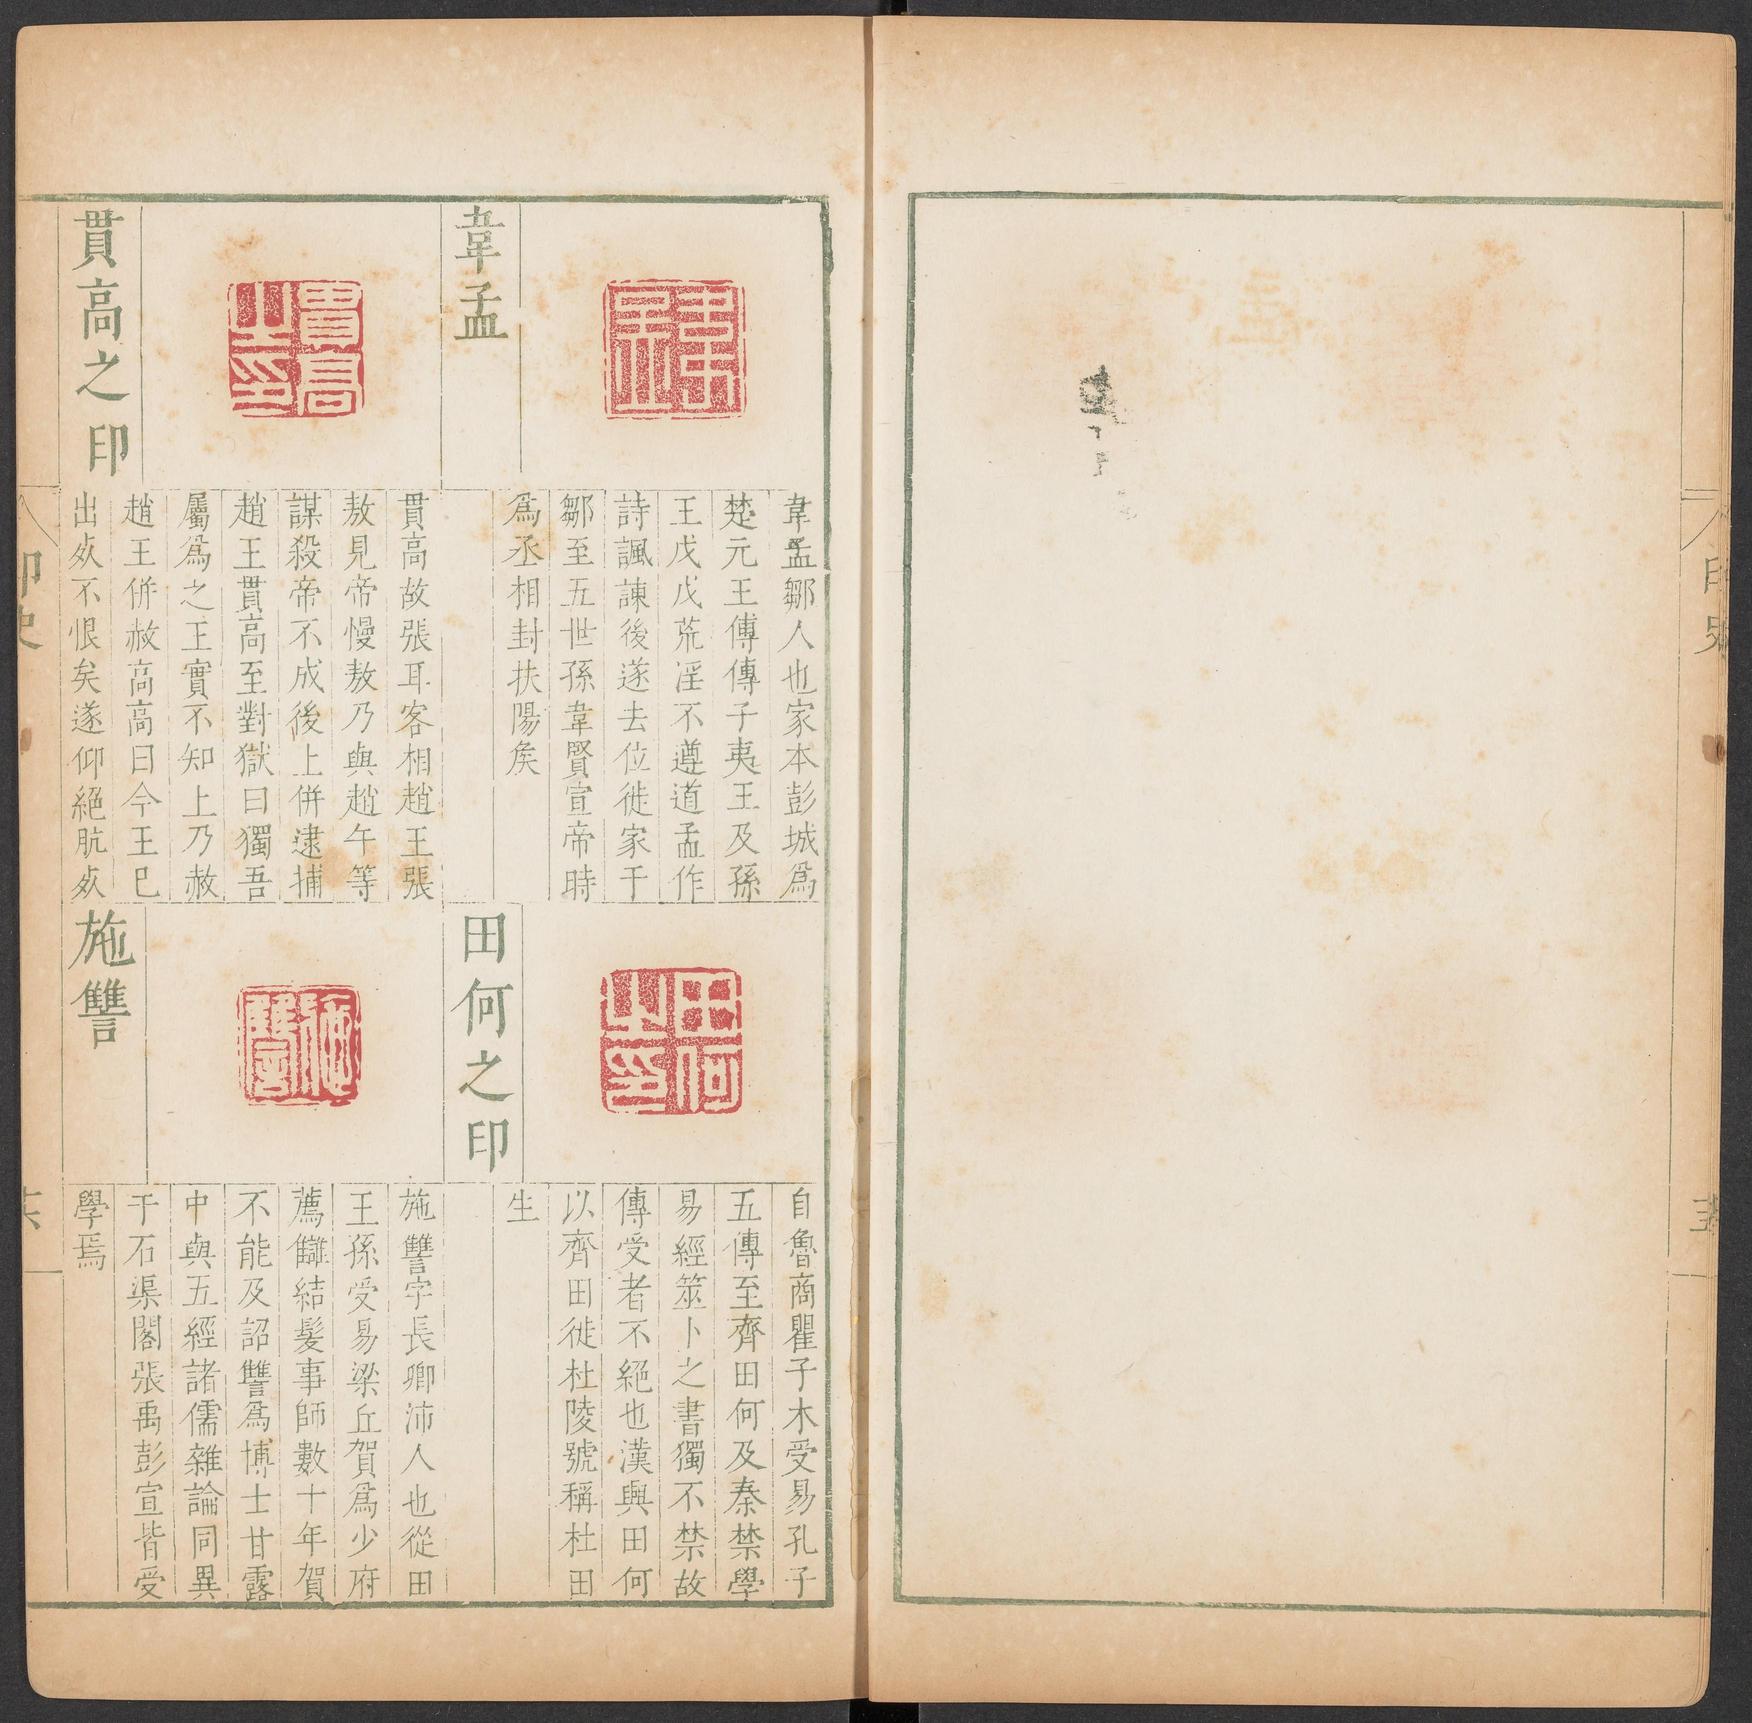 韋孟
韋孟鄒人也家本彭城爲
楚元王傅傅子夷王及孫
王戊戊荒淫不遵道孟作
詩諷諫後遂去位徙家于
鄒至五世孫韋賢宣帝時
爲丞相封扶陽矦
貫高之印
貫高故張耳客相趙王張
敖見帝慢敖乃與趙午等
謀殺帝不成後上併逮捕
趙王貫高至對獄曰獨吾
屬爲之王實不知上乃赦
趙王併赦高高曰今王已
出㱙不恨矣遂仰絕肮㱙
田何之印
自魯商瞿子木受易孔子
五傳至齊田何及秦禁學
易經筮卜之書獨不禁故
傳受者不絕也漢興田何
以齊田徙杜陵號稱杜田
生
施讐
施讐字長卿沛人也從田
王孫受易梁丘賀爲少府
薦讎結髮事師數十年賀
不能及詔讐爲博士甘露
中與五經諸儒雜論同異
于石渠閣張禹彭宣皆受
學焉
印史